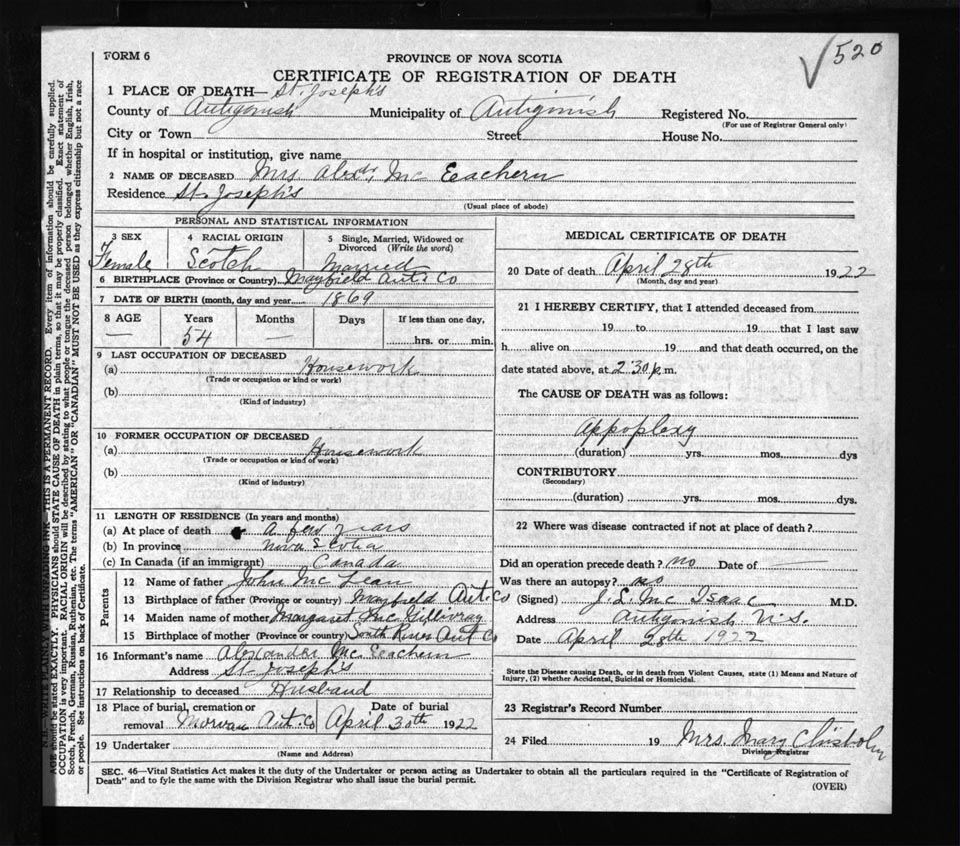 FORM 6
520
PROVINCE OF NOVA SCOTIA
CERTIFICATE OF REGISTRATION OF DEATH
1 PLACE OF DEATH— St. Joseph's
County of Antigonish Municipality of Antigonish Registered No.
(For use of Registrar General only)
City or Town Street House No.
If in hospital or institution, give name
2 NAME OF DECEASED Mrs Alexdr, Mc Eachern
Residence St. Joseph's
(Usual place of abode)
PERSONAL AND STATISTICAL INFORMATION
3 SEX Female
4 RACIAL ORIGIN Scotch
5 Single, Married, Widowed or Divorced (Write the word) Married
6 BIRTHPLACE (Province or Country) Mayfield Ant. Co
7 DATE OF BIRTH (month, day and year) 1869
8 AGE — Years 54 Months — Days If less than one day,
hrs. or min.
9 LAST OCCUPATION OF DECEASED
(a) Housework
(Trade or occupation or kind or work)
(b)
(Kind of industry)
10 FORMER OCCUPATION OF DECEASED
(a) Housework
(Trade or occupation or kind of work)
(b)
(Kind of industry)
11 LENGTH OF RESIDENCE (In years and months)
(a) At place of death a few years
(b) In province Nova Scotia
(c) In Canada (if an immigrant) Canada
Parents
12 Name of father John Mc Lean
13 Birthplace of father (Province or country) Mayfield Ant. Co
14 Maiden name of mother Margaret McGillivray
15 Birthplace of mother (Province or country) South River Ant Co
16 Informant's name Alexander Mc Eachern
Address St. Joseph's
17 Relationship to deceased Husband
18 Place of burial, cremation or removal Morvan Ant. Co
Date of burial April 30th 1922
19 Undertaker
(Name and Address)
MEDICAL CERTIFICATE OF DEATH
20 Date of death April 28th 1922
(Month, day and year)
21 I HEREBY CERTIFY, that I attended deceased from
19 to 19 that I last saw
h alive on 19 and that death occurred, on the
date stated above, at 2.30 p. m.
The CAUSE OF DEATH was as follows:
Appoplexy
(duration) yrs. mos. dys
CONTRIBUTORY
(Secondary)
(duration) yrs. mos. dys.
22 Where was disease contracted if not at place of death?
Did an operation precede death? no Date of —
Was there an autopsy? no
(Signed) J. L. Mc Isaac M.D.
Address Antigonish N.S.
Date April 28th 1922
State the Disease causing Death, or in death from Violent Causes, state (1) Means and Nature of
Injury, (2) whether Accidental, Suicidal or Homicidal.
23 Registrar's Record Number
24 Filed 19 Mrs. Mary Chisholm
Division Registrar
SEC. 46—Vital Statistics Act makes it the duty of the Undertaker or person acting as Undertaker to obtain all the particulars required in the "Certificate of Registration of
Death" and to fyle the same with the Division Registrar who shall issue the burial permit.
(OVER)
N.B. WRITE PLAINLY WITH UNFADING INK—THIS IS A PERMANENT RECORD. Every item of information should be carefully supplied.
AGE should be stated EXACTLY. PHYSICIANS should STATE CAUSE OF DEATH in plain terms, so that it may be properly classified. Exact statement of
OCCUPATION is very important. RACIAL ORIGIN will be described by stating to what people or tongue the deceased person belonged whether English, Irish,
Scotch, French, German, Russian, Ruthenian, etc. The terms "AMERICAN" OR "CANADIAN" MUST NOT BE USED as they express citizenship but not a race
or people. See instructions on back of Certificate.